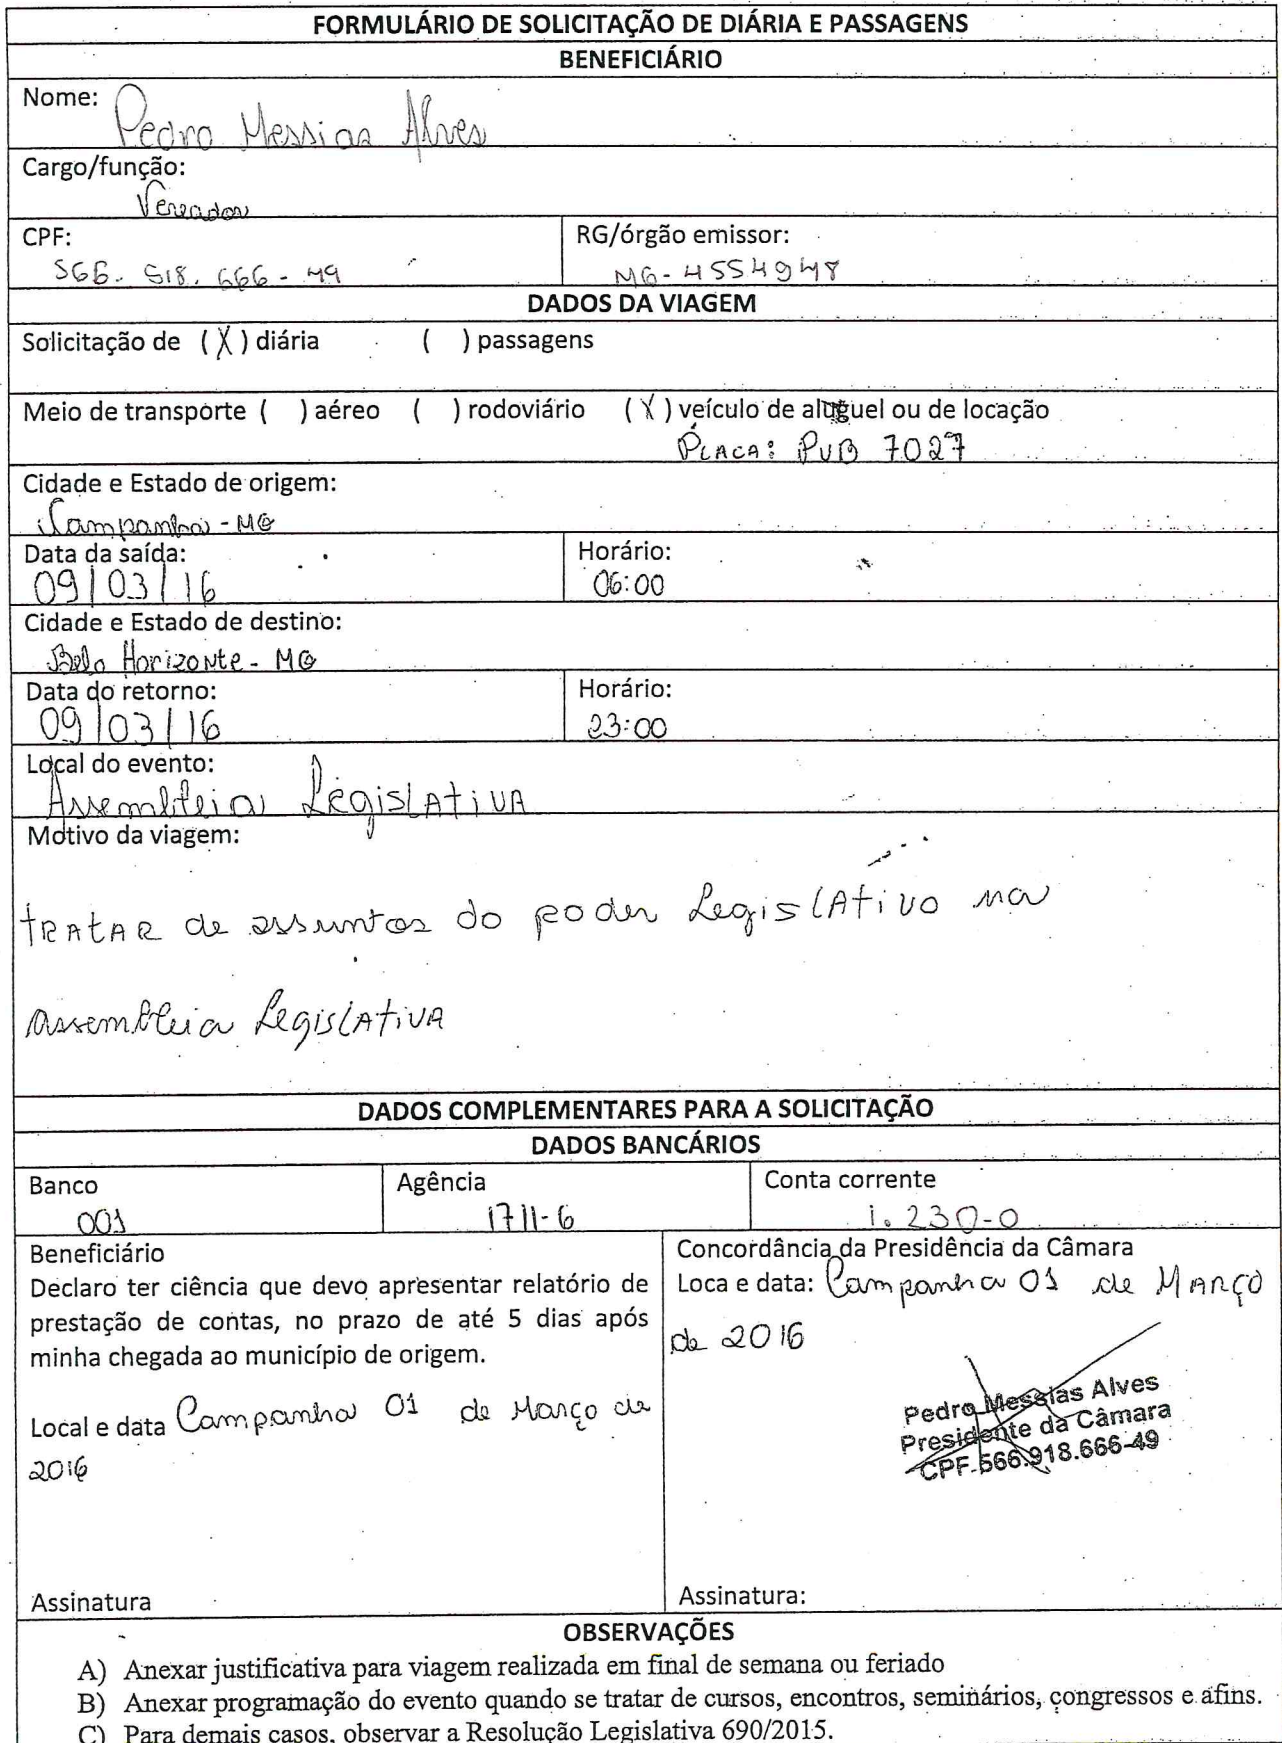 FORMULÁRIO DE SOLICITAÇÃO DE DIÁRIA E PASSAGENS
BENEFICIÁRIO
Nome:
Pedro Messias Alves
Cargo/função:
Vereador
CPF: RG/órgão emissor:
566. 918. 666-49 MG-4554948
DADOS DA VIAGEM
Solicitação de (X) diária ( ) passagens
Meio de transporte ( ) aéreo ( ) rodoviário (X) veículo de aluguel ou de locação
PLACA: PUB 7027
Cidade e Estado de origem:
Campanha - MG
Data da saída: Horário:
09/03/16 06:00
Cidade e Estado de destino:
Belo Horizonte - MG
Data do retorno: Horário:
09/03/16 23:00
Local do evento:
Assembleia Legislativa
Motivo da viagem:
tratar de assuntos do poder Legislativo na
assembleia Legislativa
DADOS COMPLEMENTARES PARA A SOLICITAÇÃO
DADOS BANCÁRIOS
Banco Agência Conta corrente
001 1711-6 1.230-0
Beneficiário
Declaro ter ciência que devo apresentar relatório de
prestação de contas, no prazo de até 5 dias após
minha chegada ao município de origem.
Local e data Campanha 01 de Março de
2016
Assinatura
Concordância da Presidência da Câmara
Loca e data: Campanha 01 de Março
de 2016
Pedro Messias Alves
Presidente da Câmara
CPF-566.918.666-49
Assinatura:
OBSERVAÇÕES
A) Anexar justificativa para viagem realizada em final de semana ou feriado
B) Anexar programação do evento quando se tratar de cursos, encontros, seminários, congressos e afins.
C) Para demais casos, observar a Resolução Legislativa 690/2015.